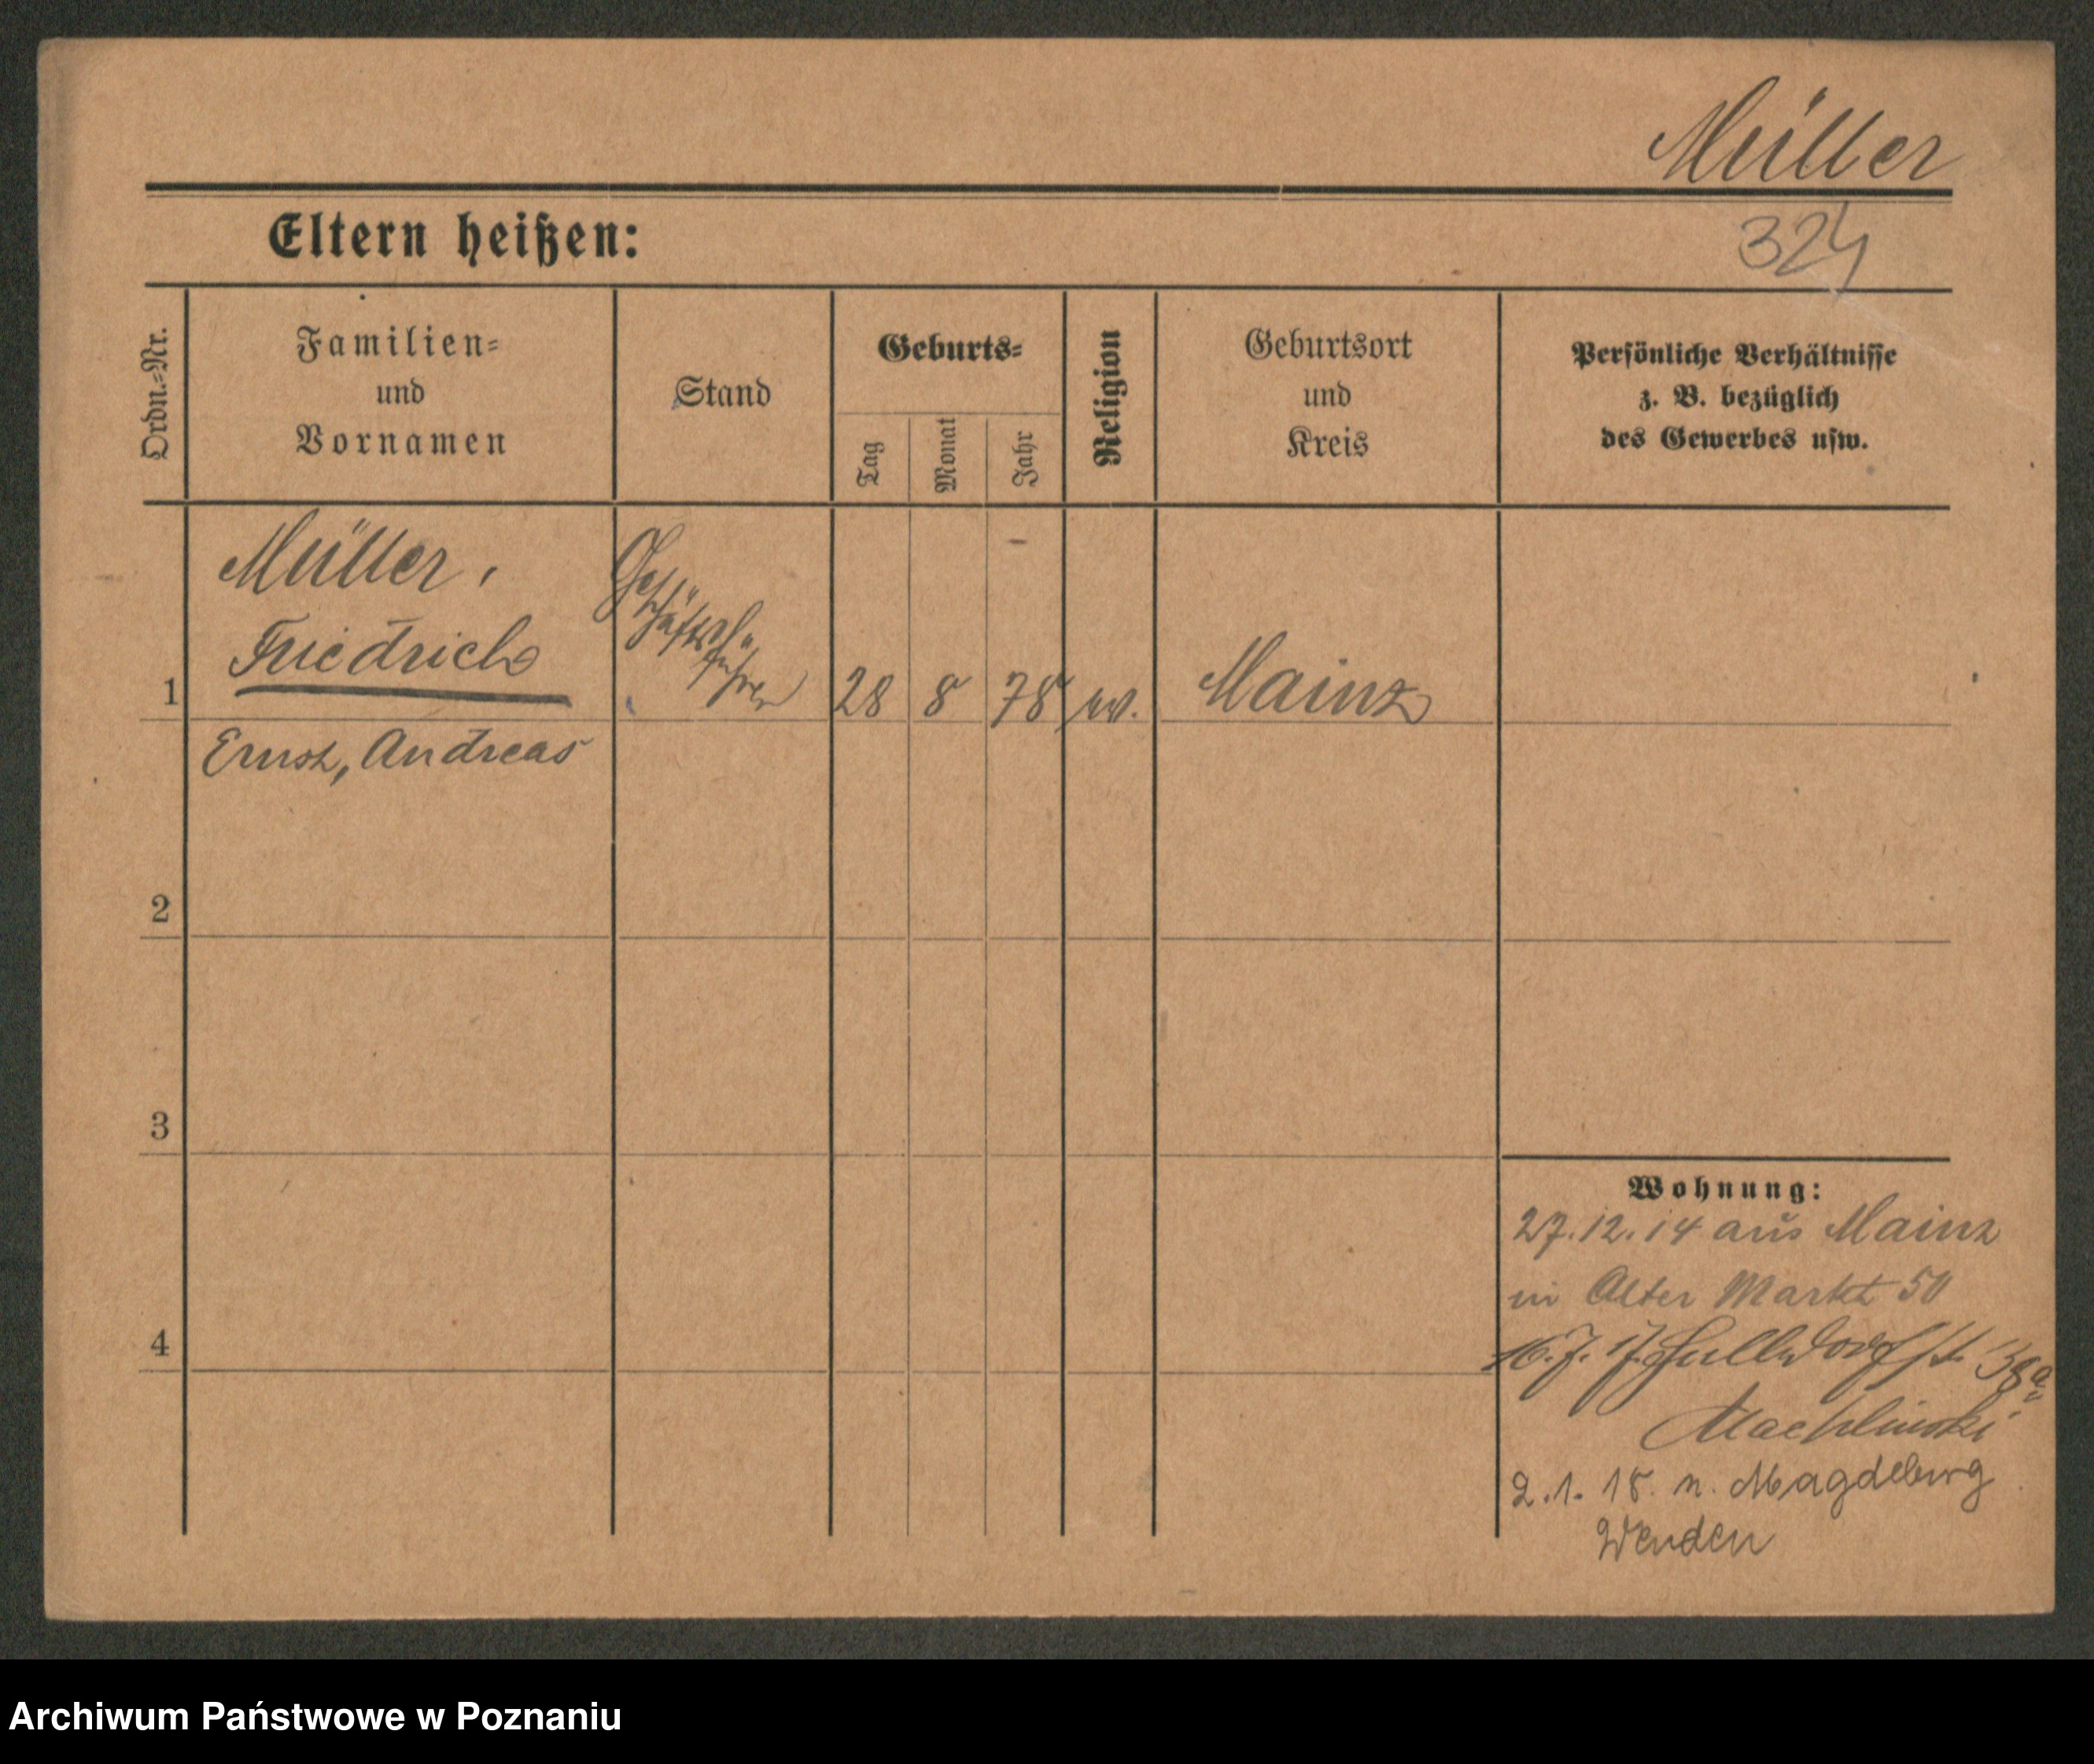 Müller
324
Eltern heißen:
Ordn.-Nr.
Familien-
und
Vornamen
Stand
Geburts-
Tag
Monat
Jahr
Religion
Geburtsort
und
Kreis
Persönliche Verhältnisse
z. B. bezüglich
des Gewerbes usw.
1
Müller,
Friedrich
Ernst, Andreas
Geschäftsführer
28
8
78
ev.
Mainz
2
3
4
Wohnung:
27.12.14 aus Mainz
in Alter Markt 50
16.7.17. 38a
2.1.18. n. Magdeburg
Wenden
Archiwum Państwowe w Poznaniu